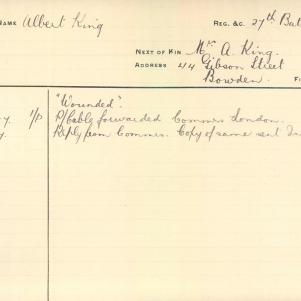 NAME Albert King REG. &C. 27th Bat
NEXT OF KIN Mr. A. King.
ADDRESS 44 Gibson Street
Bowden.
"Wounded".
y. 1/D P/Cable forwarded Commrs London.
y. Reply from Commrs. Copy of same sent